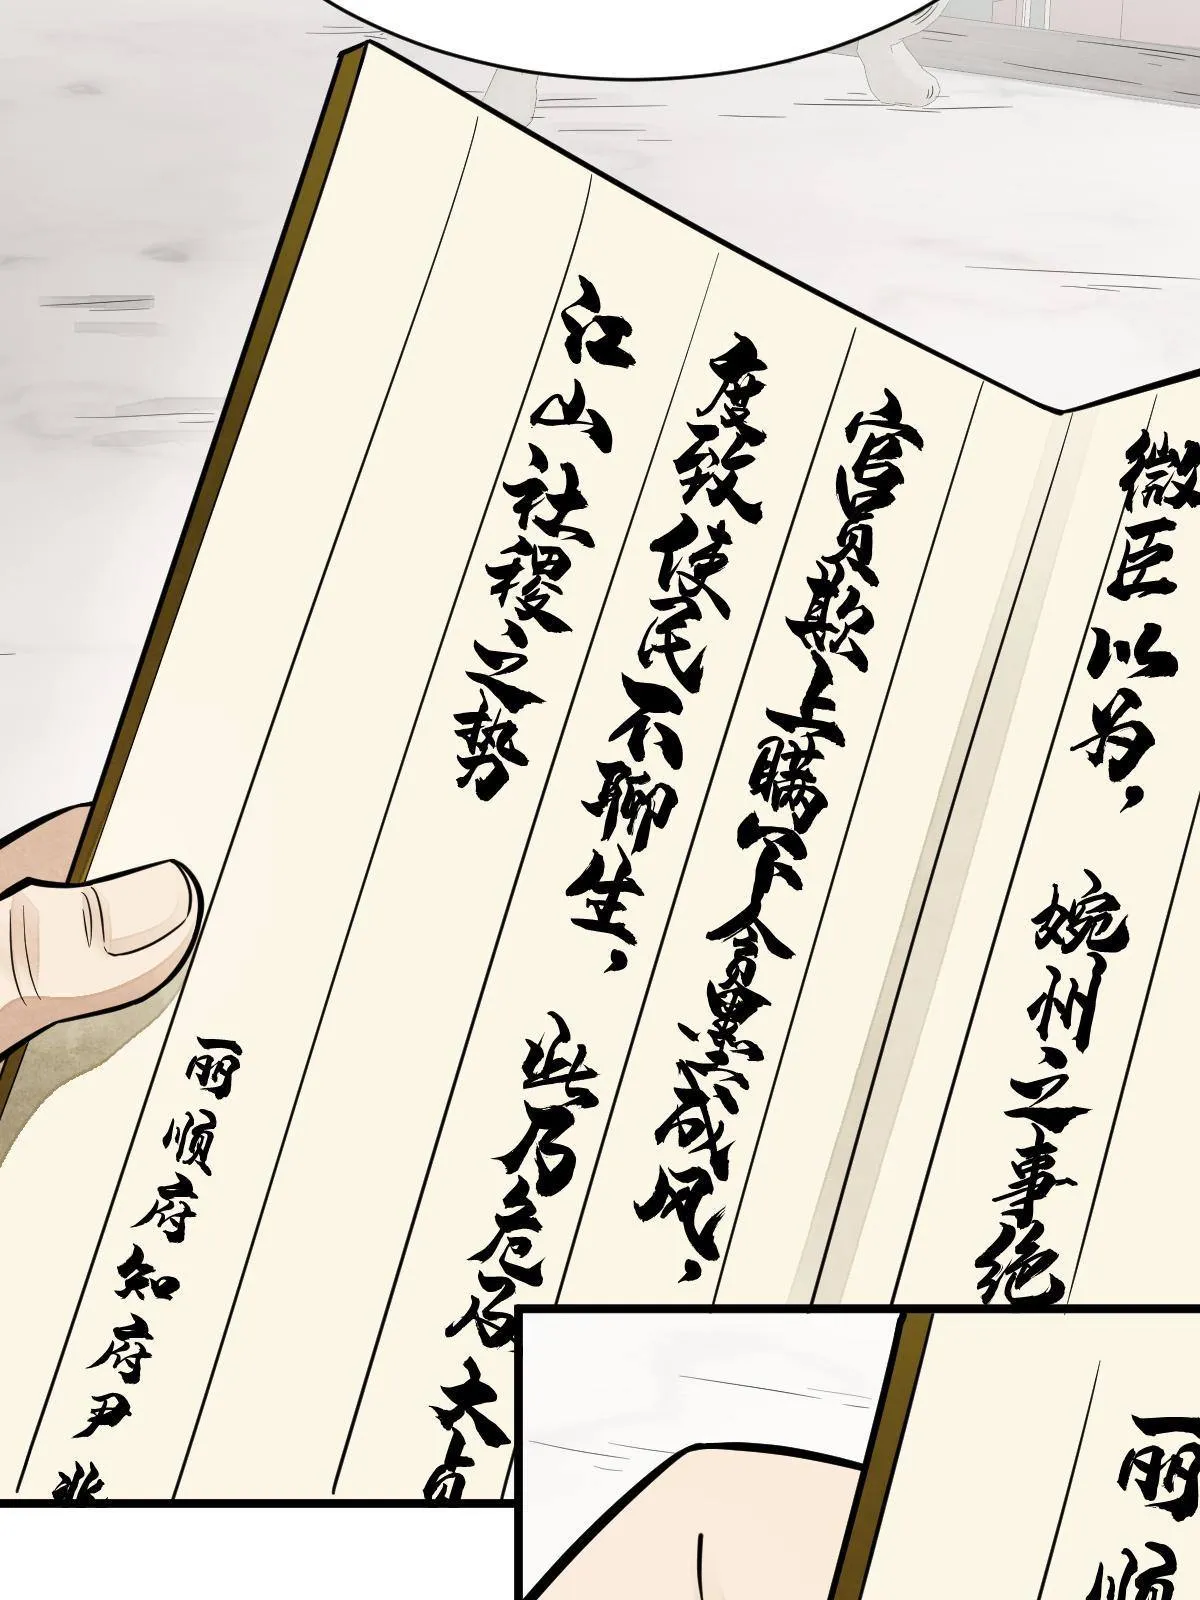 微臣以为，婉州之事绝
官员欺上瞒下贪墨成风，
度致使民不聊生，此乃危及大贞
江山社稷之势
丽顺府知府尹兆
丽顺